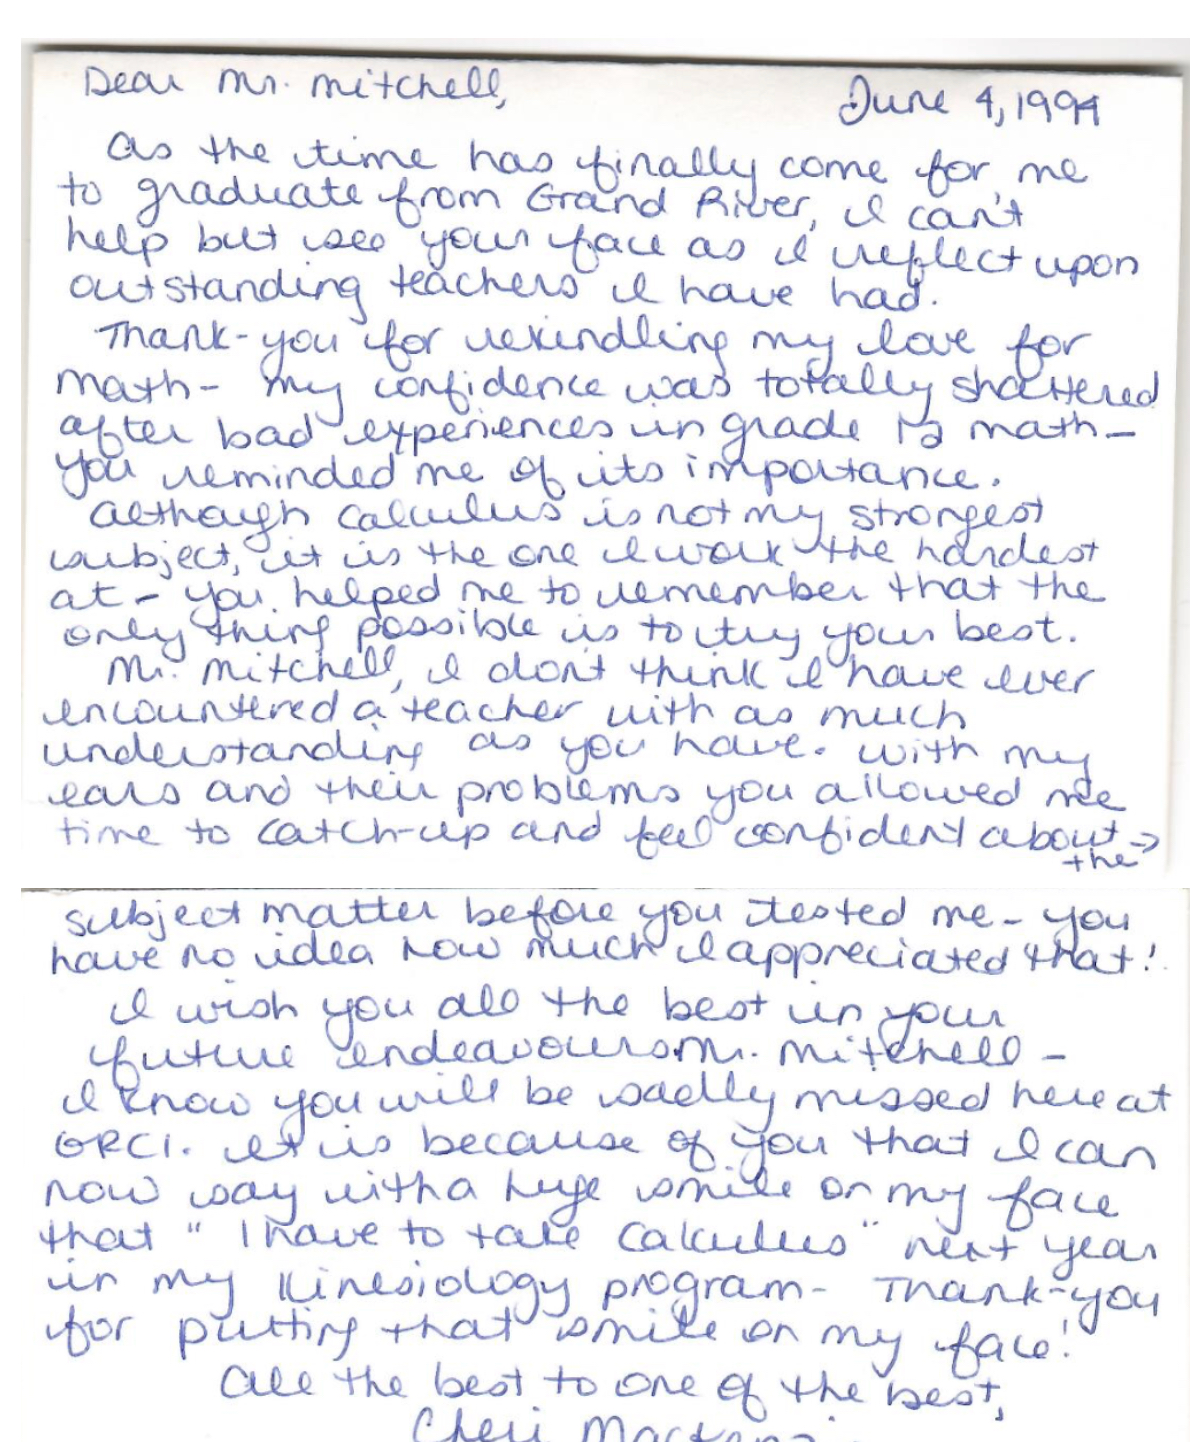 Dear Mr. Mitchell,
June 4, 1994
As the time has finally come for me
to graduate from Grand River, I can't
help but see your face as I reflect upon
outstanding teachers I have had.
Thank-you for rekindling my love for
math - my confidence was totally shattered
after bad experiences in grade 12 math -
you reminded me of its importance.
Although calculus is not my strongest
subject, it is the one I work the hardest
at - you helped me to remember that the
only thing possible is to try your best.
Mr. Mitchell, I don't think I have ever
encountered a teacher with as much
understanding as you have. With my
ears and their problems you allowed me
time to catch-up and feel confident about →
the
subject matter before you tested me - you
have no idea how much I appreciated that!
I wish you all the best in your
future endeavours Mr. Mitchell -
I know you will be sadly missed here at
GRCI. It is because of you that I can
now say with a huge smile on my face
that "I have to take calculus" next year
in my Kinesiology program - Thank-you
for putting that smile on my face!
All the best to one of the best,
Cheri